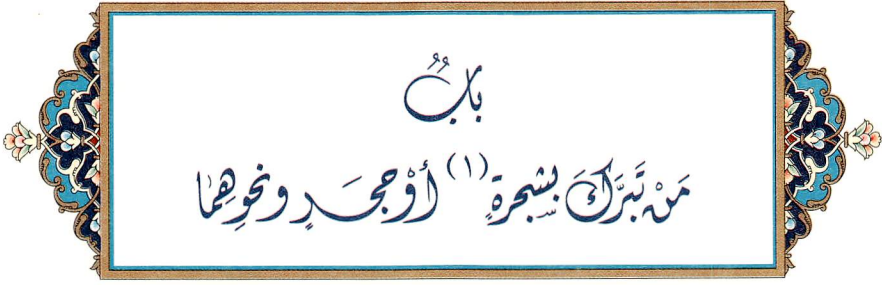 بابٌ
مَنْ تَبَرَّكَ بشجرةٍ (١) أوْ حجَرٍ ونحوِهِما